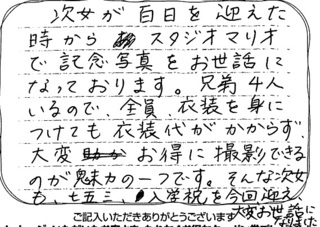 次女が百日を迎えた
時からスタジオマリオ
で記念写真をお世話に
なっております。兄弟4人
いるので、全員、衣装を身に
つけても衣装代がかからず、
大変お得に撮影できる
のが魅力の一つです。そんな次女
も、七五三、入学祝を今回迎え、
大変お世話に
なりました
ご記入いただきありがとうございます